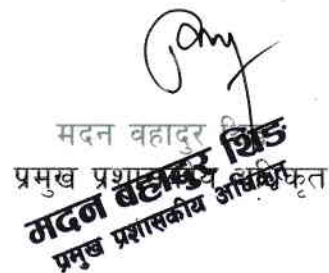 मदन वहादुर
प्रमुख प्रशासकीय अधिकृत
मदन बहादुर थिङ
प्रमुख प्रशासकीय अधिकृत